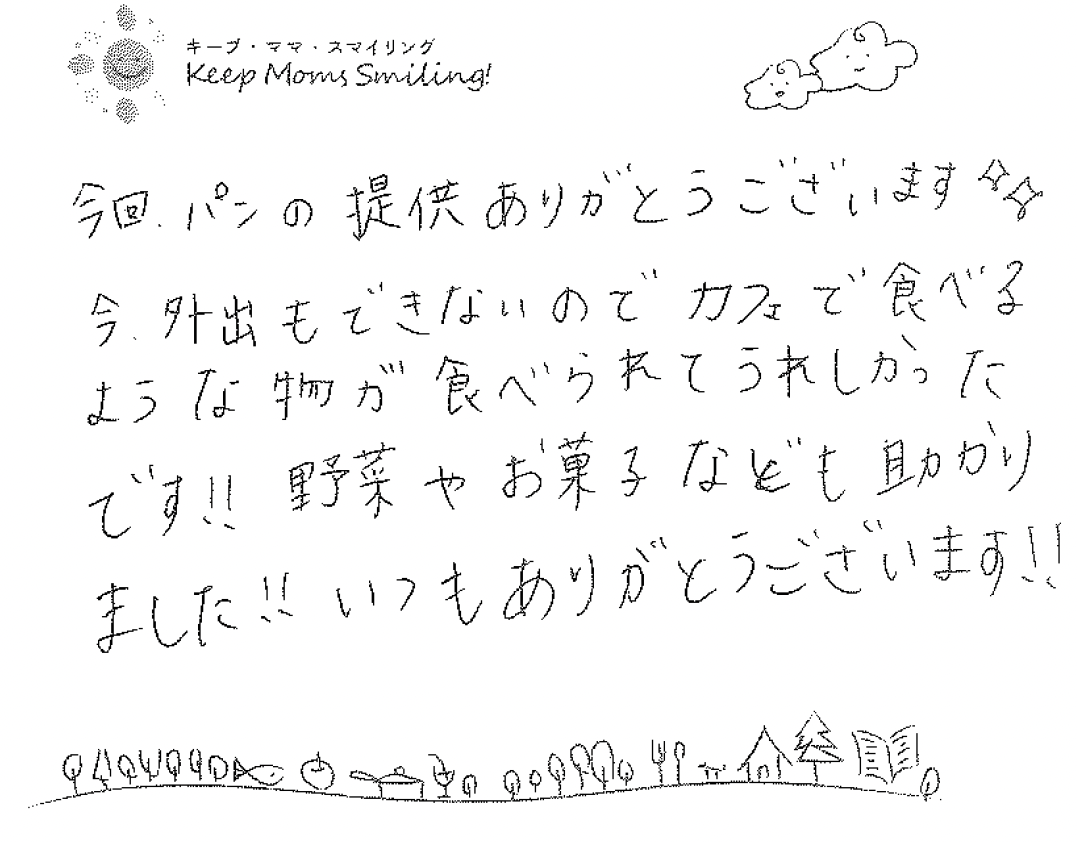 キープ・ママ・スマイリング
Keep Moms Smiling!
今回、パンの提供ありがとうございます
今、外出もできないのでカフェで食べる
ような物が食べられてうれしかった
です!! 野菜やお菓子なども助かり
ました!! いつもありがとうございます!!